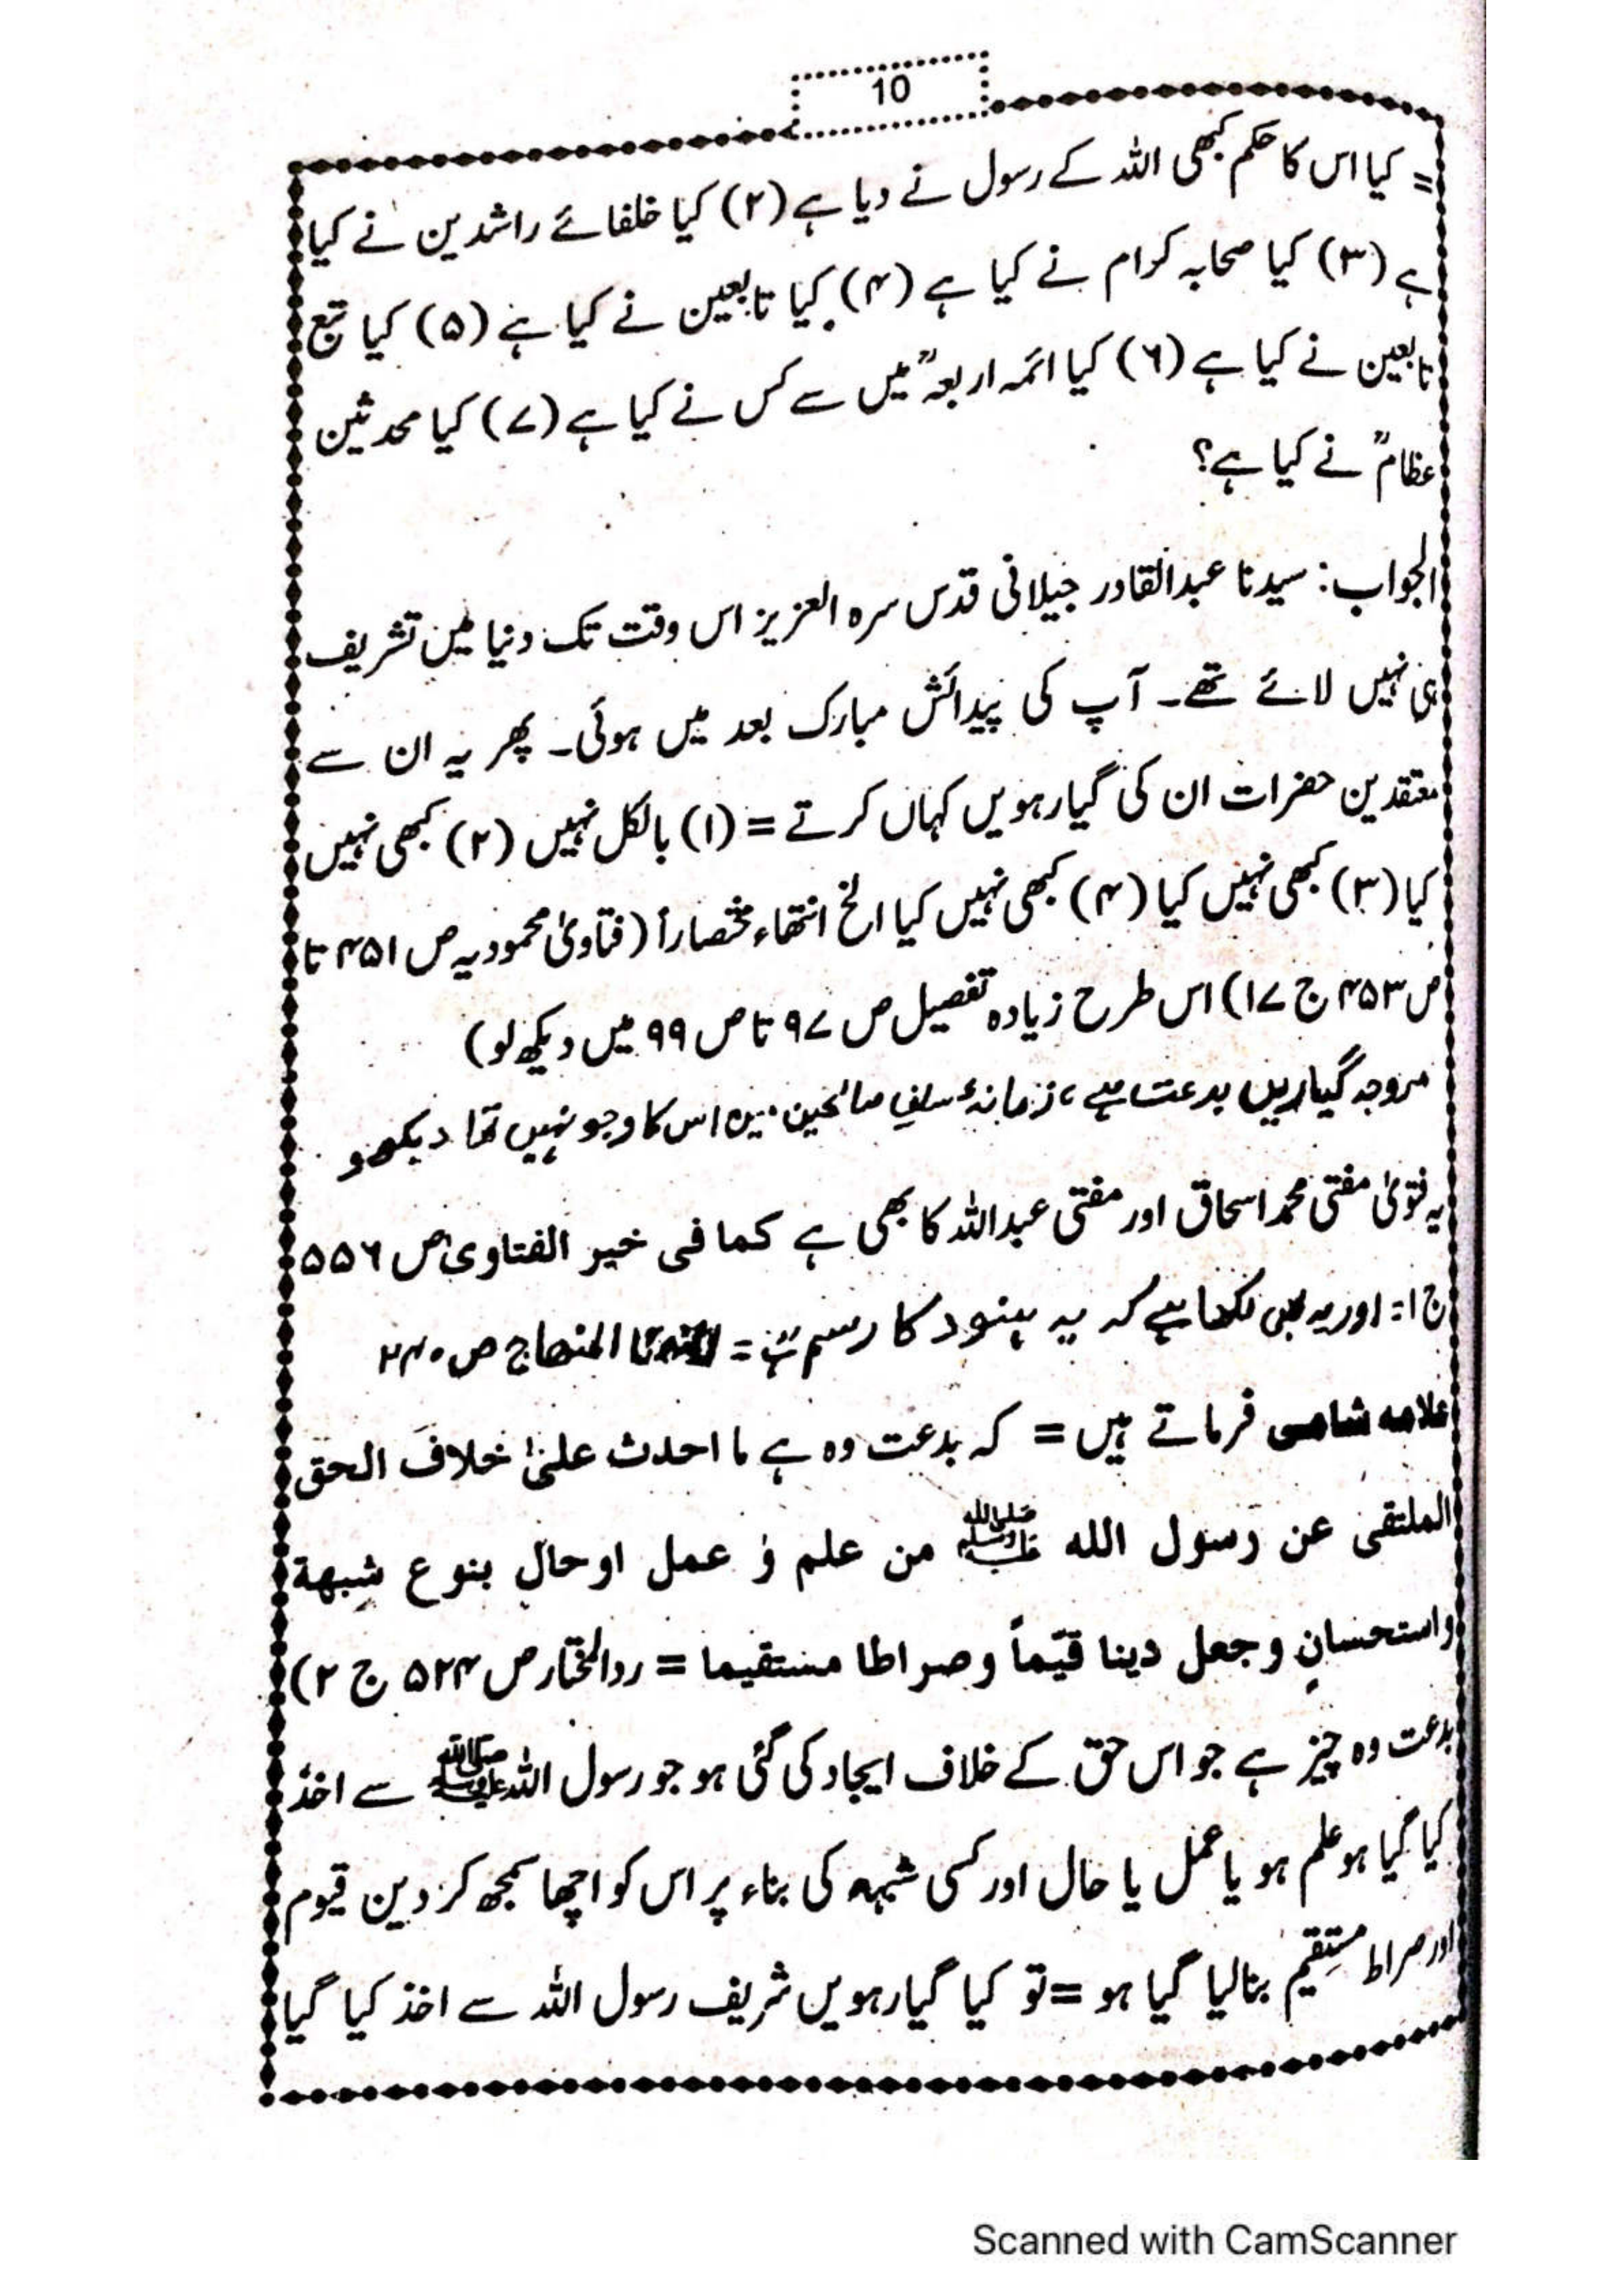 10
= کیا اس کا حکم کبھی اللہ کے رسول نے دیا ہے (۲) کیا خلفائے راشدین نے کیا
ہے (۳) کیا صحابہ کرام نے کیا ہے (۴) کیا تابعین نے کیا ہے (۵) کیا تبع
تابعین نے کیا ہے (۶) کیا ائمہ اربعہؒ میں سے کس نے کیا ہے (۷) کیا محدثین
عظامؒ نے کیا ہے؟
الجواب: سیدنا عبدالقادر جیلانی قدس سرہ العزیز اس وقت تک دنیا میں تشریف
ہی نہیں لائے تھے۔ آپ کی پیدائش مبارک بعد میں ہوئی۔ پھر یہ ان سے
معتقدین حضرات ان کی گیارہویں کہاں کرتے = (۱) بالکل نہیں (۲) کبھی نہیں
کیا (۳) کبھی نہیں کیا (۴) کبھی نہیں کیا الخ انتھاء مختصاراً (فتاویٰ محمودیہ ص ۴۵۱ تا
ص ۴۵۳ ج ۱۷) اس طرح زیادہ تفصیل ص ۹۷ تا ص ۹۹ میں دیکھ لو)
مروجہ گیاریں بدعت ہے، زمانۂ سلفِ صالحین میں اس کا وجو نہیں تھا دیکھو
یہ فتویٰ مفتی محمد اسحاق اور مفتی عبداللہ کا بھی ہے کما فی خیر الفتاویٰ ص ۵۵۶
ج ۱ = اور یہ بھی لکھا ہے کہ یہ ہنود کا رسم ہے = المنھاج ص ۲۴۰
علامہ شامی فرماتے ہیں = کہ بدعت وہ ہے ما احدث علیٰ خلافَ الحق
الملتقی عن رسول اللہ ﷺ من علم وٗ عمل او حالٍ بنوع شبھة
واستحسانٍ وجعل دینا قیّماً وصراطا مستقیما = ردالمختار ص ۵۲۴ ج ۲)
بدعت وہ چیز ہے جو اس حق کے خلاف ایجاد کی گئی ہو جو رسول اللہ ﷺ سے اخذ
کیا گیا ہو علم ہو یا عمل یا حال اور کسی شبہہ کی بناء پر اس کو اچھا سمجھ کر دین قیوم
اور صراط مستقیم بنالیا گیا ہو = تو کیا گیارہویں شریف رسول اللہ سے اخذ کیا گیا
Scanned with CamScanner